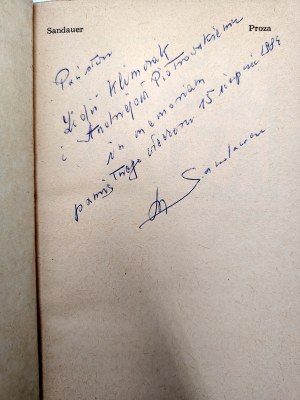 Sandauer Proza
Państwu
Lidii Klimczak
i Andrzejowi Piotrowskiemu
in memoriam
pamiętnego wieczoru 15 sierpnia 1984
A Sandauer